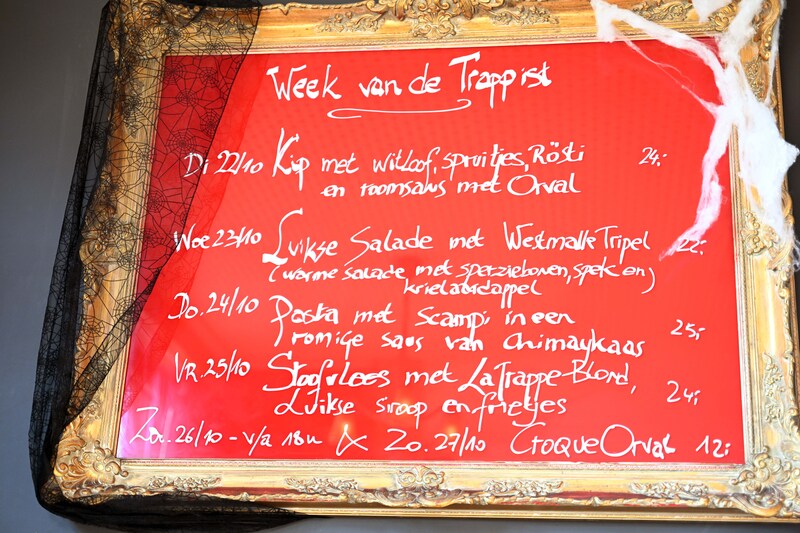 Week van de Trappist
Di 22/10 Kip met witloof, spruitjes, Rösti 24,-
en roomsaus met Orval
Woe 23/10 Luikse Salade met Westmalle Tripel 22,-
(warme salade met sperziebonen, spek en)
krielaardappel
Do. 24/10 Pasta met Scampi in een
romige saus van Chimaykaas 25,-
Vr. 25/10 Stoofvlees met LaTrappe-Blond, 24,-
Luikse siroop en frietjes
Za. 26/10 - v/a 18u & Zo. 27/10 Croque Orval 12,-